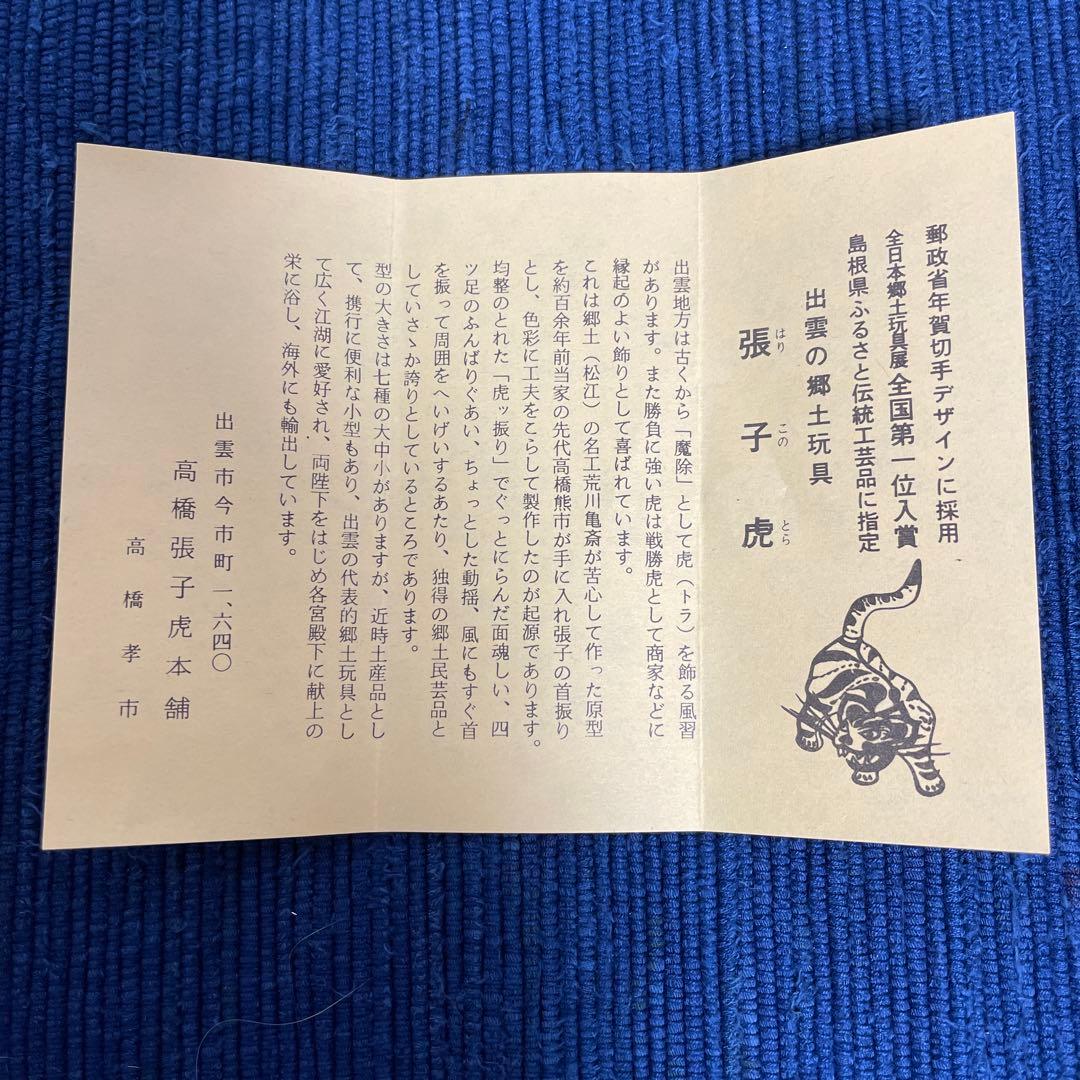 郵政省年賀切手デザインに採用
全日本郷土玩具展全国第一位入賞
島根県ふるさと伝統工芸品に指定
出雲の郷土玩具
張子虎
はりこのとら
出雲地方は古くから「魔除」として虎(トラ)を飾る風習
があります。また勝負に強い虎は戦勝虎として商家などに
縁起のよい飾りとして喜ばれています。
これは郷土(松江)の名工荒川亀斎が苦心して作った原型
を約百余年前当家の先代高橋熊市が手に入れ張子の首振り
とし、色彩に工夫をこらして製作したのが起源であります。
均整のとれた「虎ッ振り」でぐっとにらんだ面魂しい、四
ツ足のふんばりぐあい、ちょっとした動揺、風にもすぐ首
を振って周囲をへいげいするあたり、独得の郷土民芸品と
していさゝか誇りとしているところであります。
型の大きさは七種の大中小がありますが、近時土産品とし
て、携行に便利な小型もあり、出雲の代表的郷土玩具とし
て広く江湖に愛好され、両陛下をはじめ各宮殿下に献上の
栄に浴し、海外にも輸出しています。
出雲市今市町一、六四〇
高橋張子虎本舗
高橋孝市